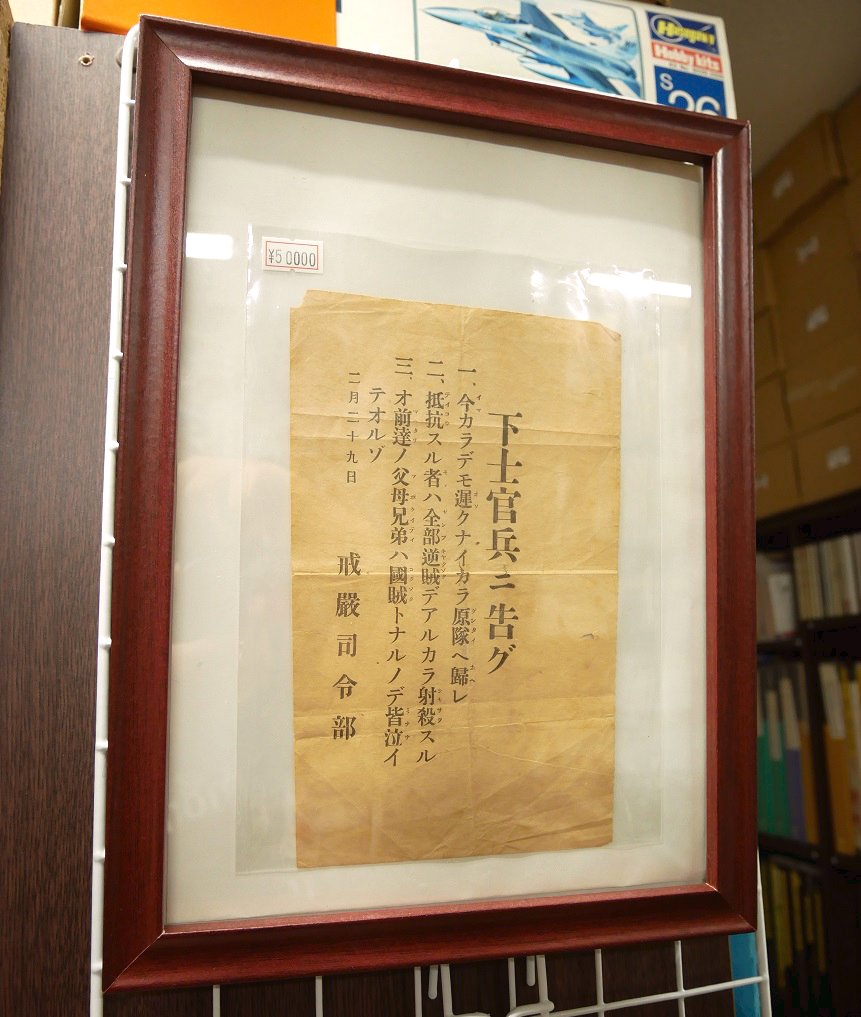 Hasegawa
Hobby kits
S
26
¥50000
下士官兵ニ告グ
一、今カラデモ遲クナイカラ原隊ヘ歸レ
二、抵抗スル者ハ全部逆賊デアルカラ射殺スル
三、オ前達ノ父母兄弟ハ國賊トナルノデ皆泣イ
テオルゾ
二月二十九日
戒嚴司令部